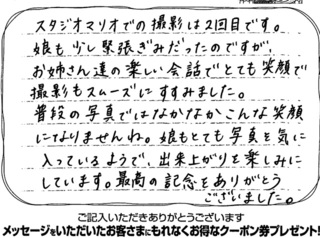 スタジオマリオでの撮影は2回目です。
娘も少し緊張ぎみだったのですが、
お姉さん達の楽しい会話でとても笑顔で
撮影もスムーズにすすみました。
普段の写真ではなかなかこんな笑顔
になりませんね。娘もとても写真を気に
入っているようで、出来上がりを楽しみに
しています。最高の記念をありがとう
ございました。
ご記入いただきありがとうございます
メッセージをいただいたお客さまにもれなくお得なクーポン券プレゼント!